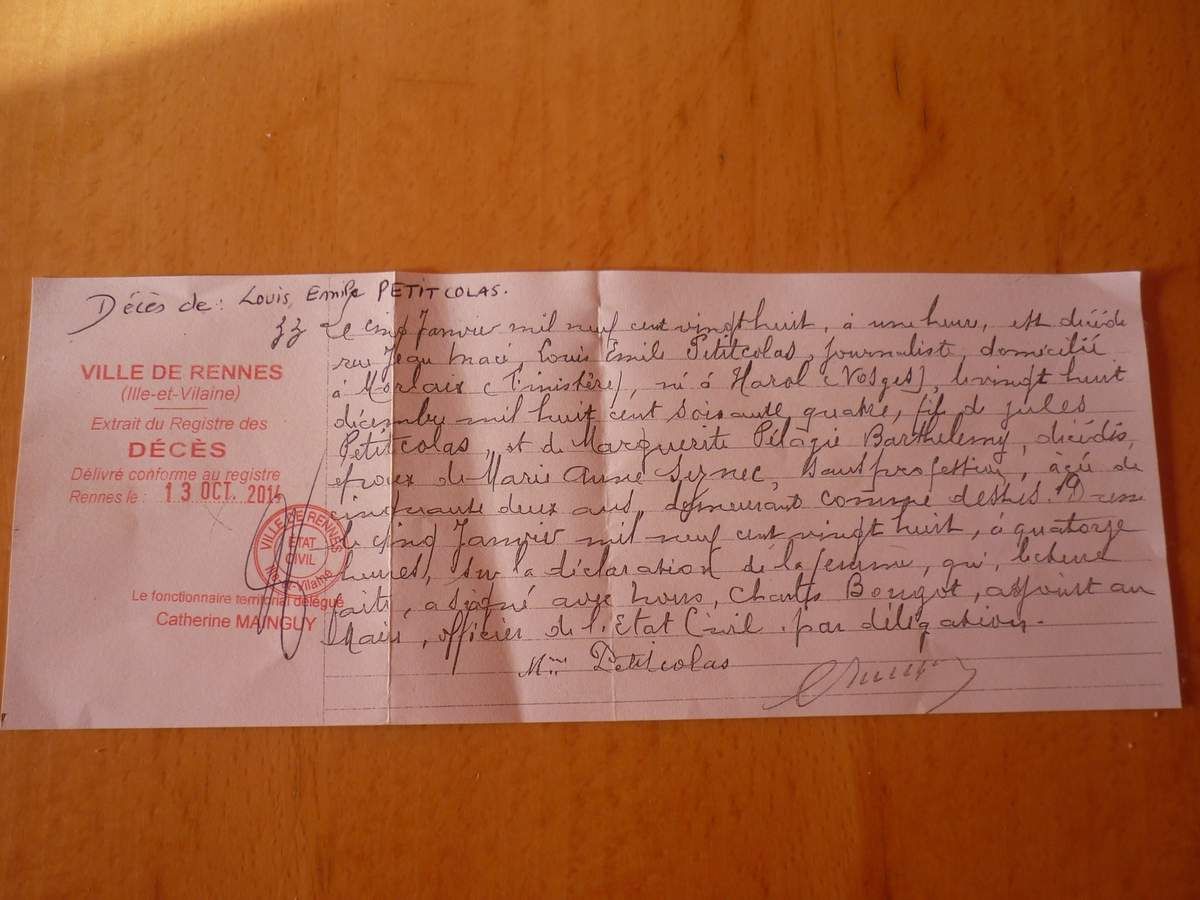 Décès de : Louis, Emile PETITCOLAS.
33 Le cinq Janvier mil neuf cent vingt huit, à une heure, est décédé
rue Jean Macé, Louis Emile Petitcolas, journaliste, domicilié
à Morlaix (Finistère), né à Harol (Vosges), le vingt huit
décembre mil huit cent soixante quatre, fils de Jules
Petitcolas, et de Marguerite Pélagie Barthelemy, décédés,
époux de Marie Anne, sans profession, âgée de
cinquante deux ans, demeurant comme dessus. Dressé
le cinq Janvier mil neuf cent vingt huit, à quatorze
heures, sur la déclaration de la femme, qui, lecture
faite, a signé avec nous, Charles Bougot, adjoint au
Maire, officier de l'Etat Civil par délégation.
Mme Petitcolas
VILLE DE RENNES
(Ille-et-Vilaine)
Extrait du Registre des
DÉCÈS
Délivré conforme au registre
Rennes le : 13 OCT. 2014
VILLE DE RENNES
ETAT
CIVIL
Ille-et-Vilaine
Le fonctionnaire territorial délégué
Catherine MAINGUY